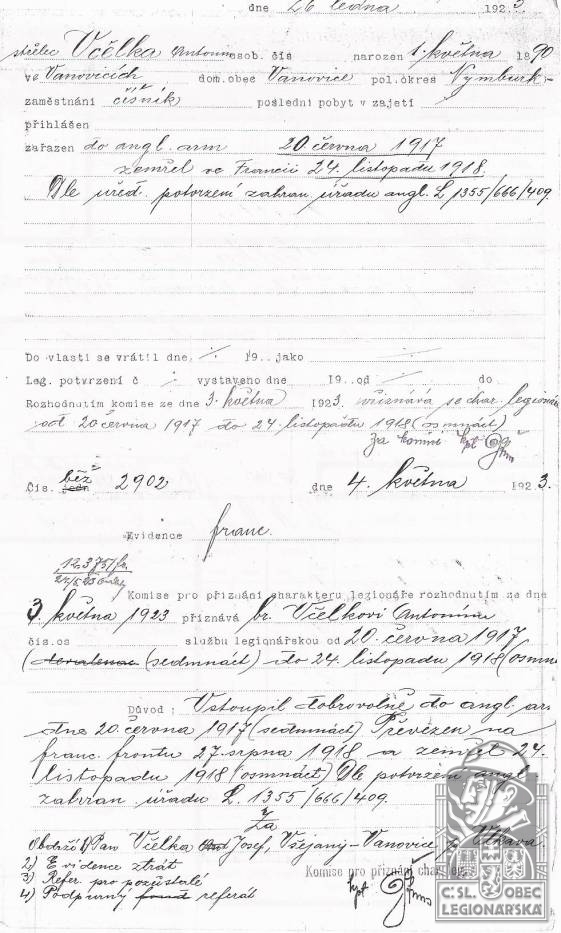 dne 26 ledna 1923
střelec Včelka Antonín osob. čís narozen 1. května 1890
ve Vanovicích dom.obec Vanovice pol.okres Nymburk-
zaměstnání číšník poslední pobyt v zajetí
přihlášen
zařazen do angl. arm 20 června 1917
zemřel ve Francii 24. listopadu 1918.
Dle úřed. potvrzení zahran. úřadu angl. L 1355/666/409.
Do vlasti se vrátil dne 19 jako
Leg. potvrzení č vystaveno dne 19 od do
Rozhodnutím komise ze dne 3. května 1923 přiznává se char. legion
od 20 června 1917 do 24 listopadu 1918 (osmnáct)
Za komisi kpt
Čís. běž jedn 2902 dne 4. května 1923.
Evidence franc.
Komise pro přiznání charakteru legionáře rozhodnutím ze dne
3. května 1923 přiznává br. Včelkovi Antonínu
čís.os službu legionářskou od 20. června 1917
(sedmnáct) do 24. listopadu 1918 (osmn
Důvod : Vstoupil dobrovolně do angl. ar.
dne 20. června 1917 (sedmnáct) Převezen na
franc. frontu 27. srpna 1918 a zemřel 24.
listopadu 1918 (osmnáct) Dle potvrzení angl.
zahran. úřadu L. 1355/666/409.
Za
Obdrží 1) Pan Včelka Josef, Všejany-Vanovice p. Vlkava.
2) Evidence ztrát
3) Refer. pro pozůstalé Komise pro přiznání char. leg.
4) Podpurný fond referát kpt
ČS. OBEC
LEGIONÁŘSKÁ